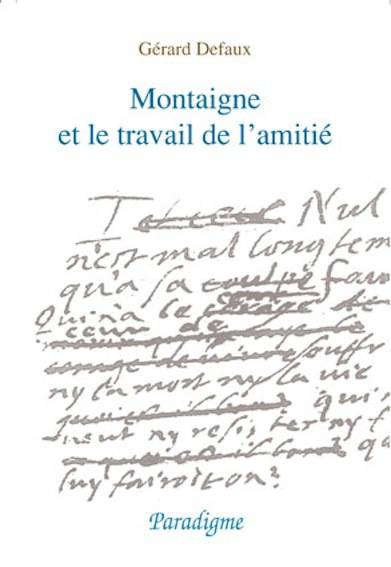 Gérard Defaux
Montaigne
et le travail de l'amitié
Nul
n'est mal long tem
qu'a sa
Qui n'a le
ceur de
souffr
ny la mort ny la vie
qui
veut ny resister ny f
qu
luy fairoit on?
Paradigme